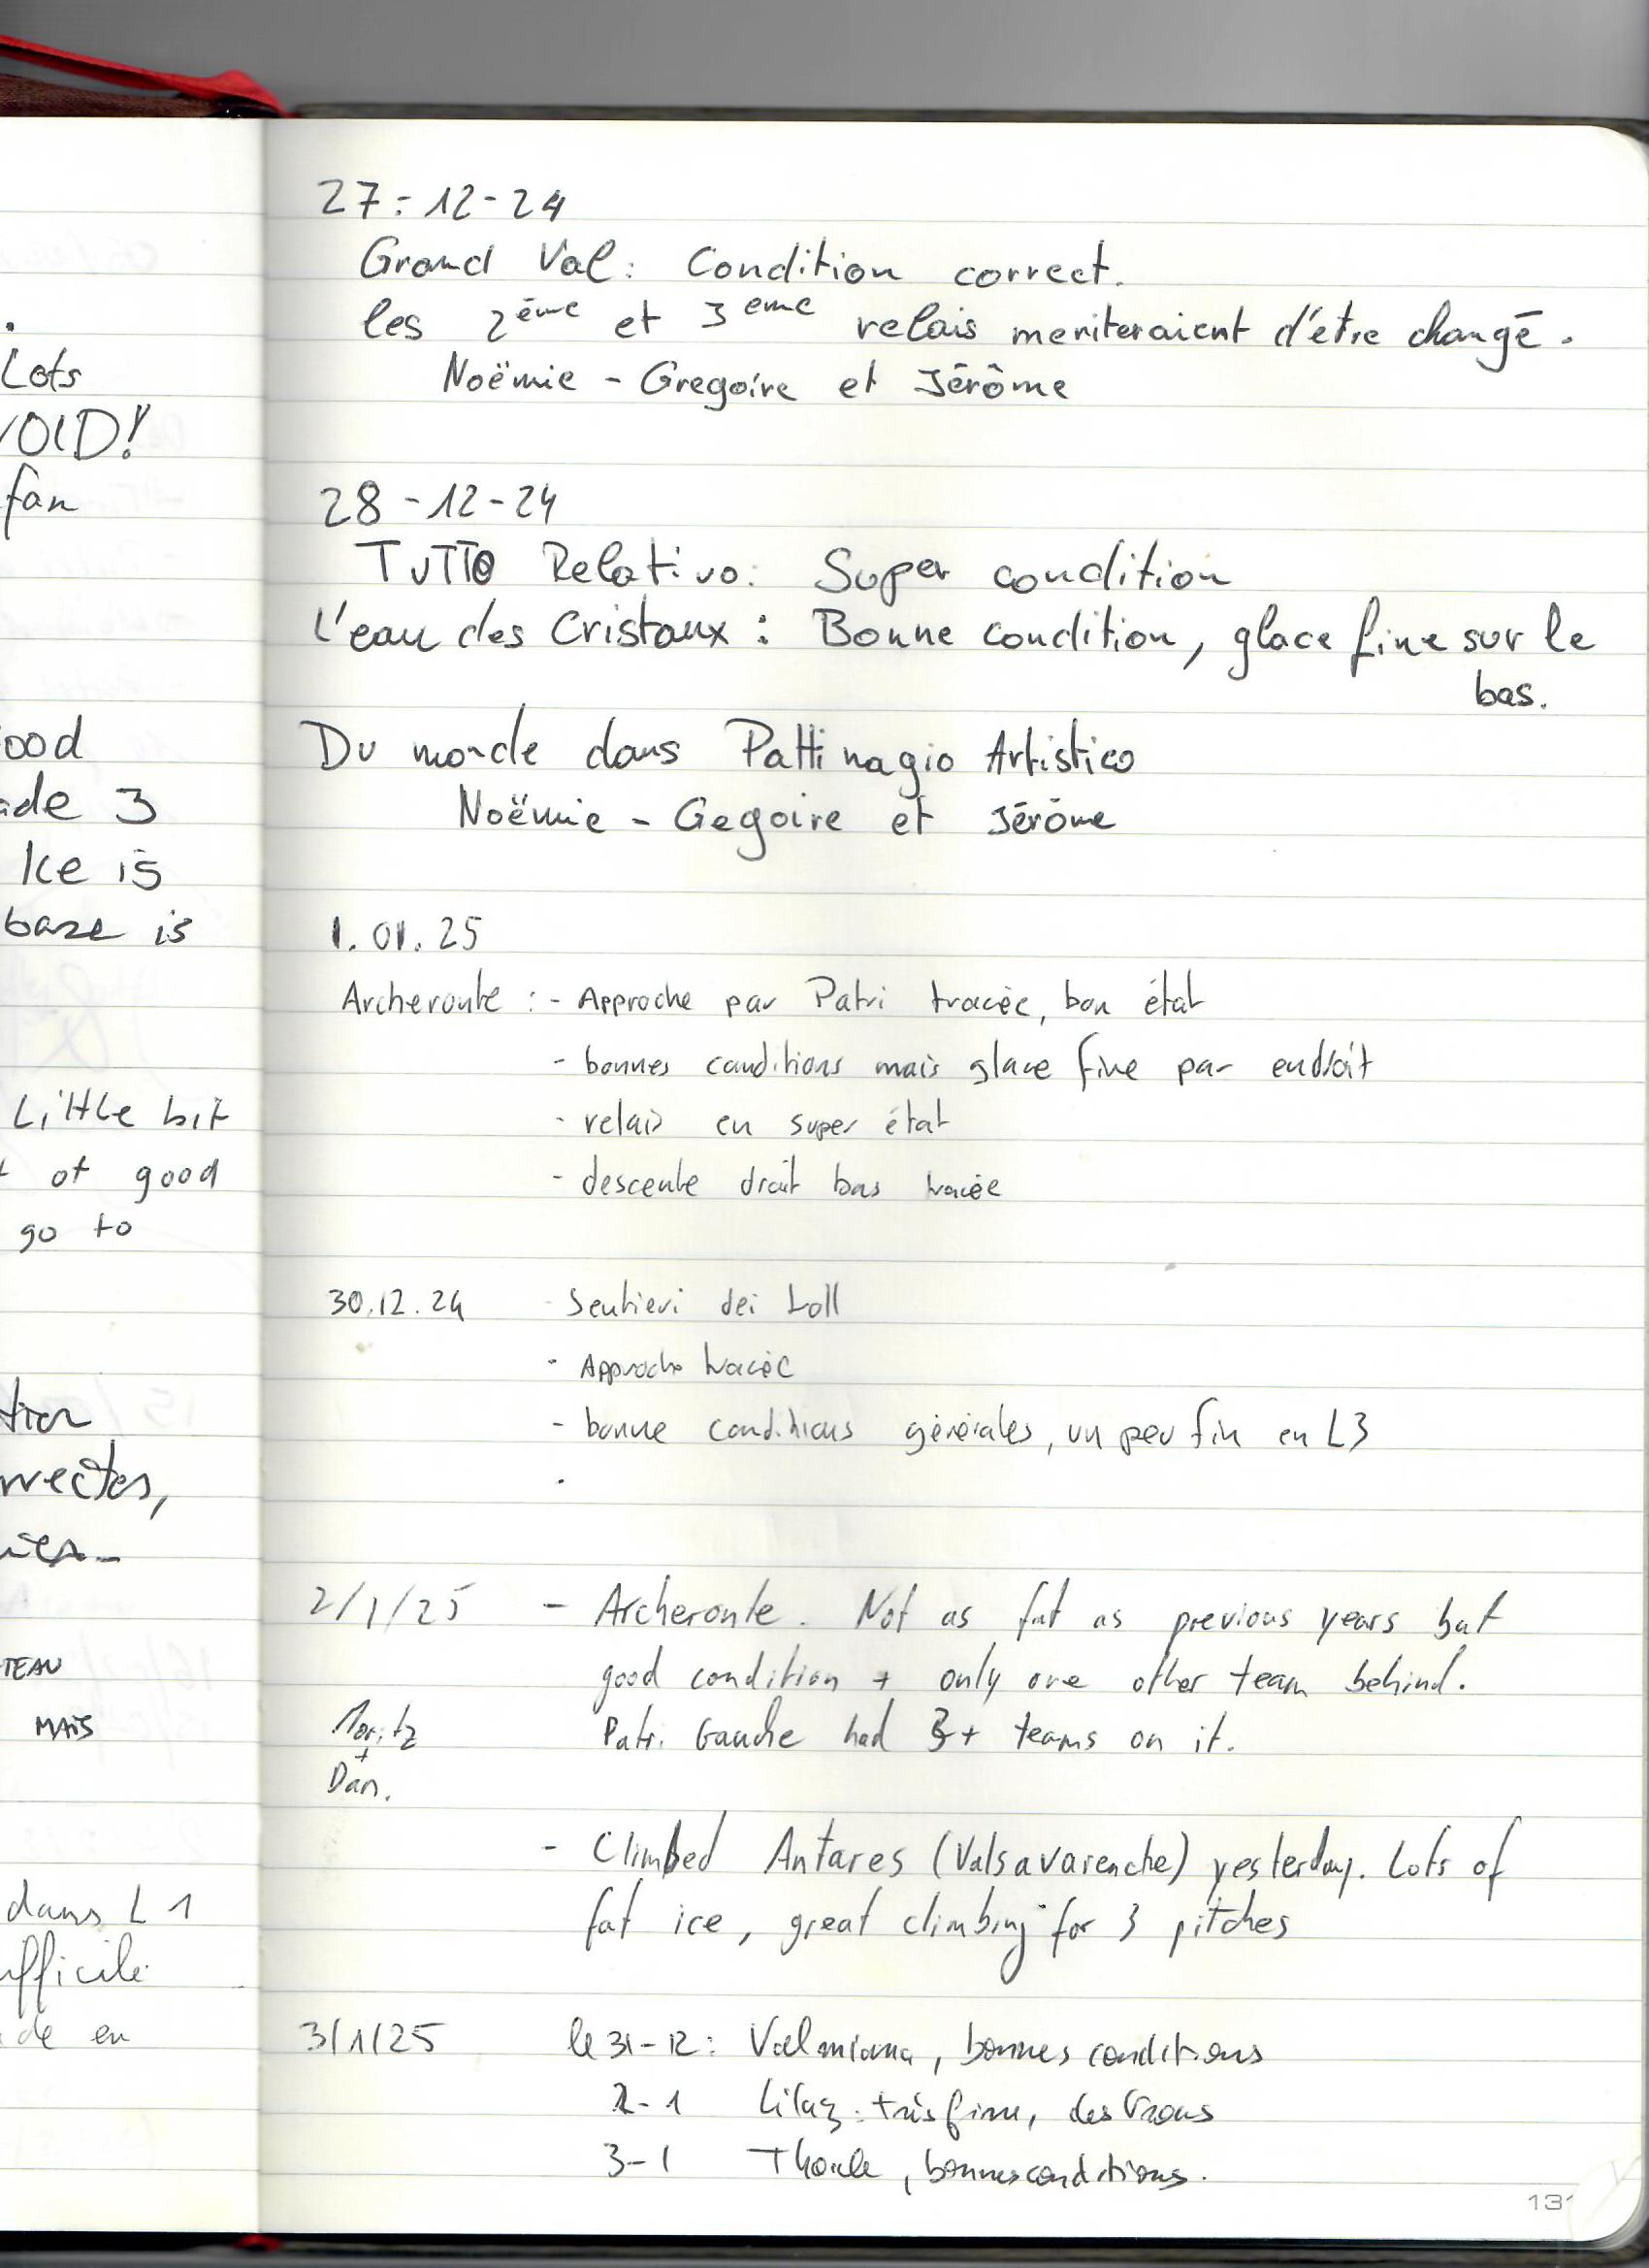 .
Lots
VOID!
fan
ood
ade 3
Ice is
baze is
Little bit
t of good
go to
tion
rrectes,
TEAU
MAIS
dans L 1
ifficile
de en
27-12-24
Grand Val : Condition correct.
les 2ème et 3eme relais meriteraient d'être changé.
Noëmie - Gregoire et Jérôme
28-12-24
TUTTO Relativo : Super condition
L'eau des Cristaux : Bonne condition, glace fine sur le
bas.
Du monde dans Pattinagio Artistico
Noëmie - Gegoire et Jérôme
1.01.25
Archeronte : - Approche par Patri tracée, bon état
- bonnes conditions mais glace fine par endroit
- relais en super état
- descente droit bas tracée
30.12.24 - Sentieri dei Loll
- Approche tracée
- bonne conditions générales, un peu fin en L3
-
2/1/25 - Archeronte. Not as fat as previous years but
good condition + only one other team behind.
Moritz Patri Gauche had 3+ teams on it.
+
Dan.
- Climbed Antares (Valsavarenche) yesterday. Lots of
fat ice, great climbing for 3 pitches
3/1/25 le 31-12 : Valmiana, bonnes conditions
2-1 Lillaz : très fine, des trous
3-1 Thoule, bonnes conditions.
131